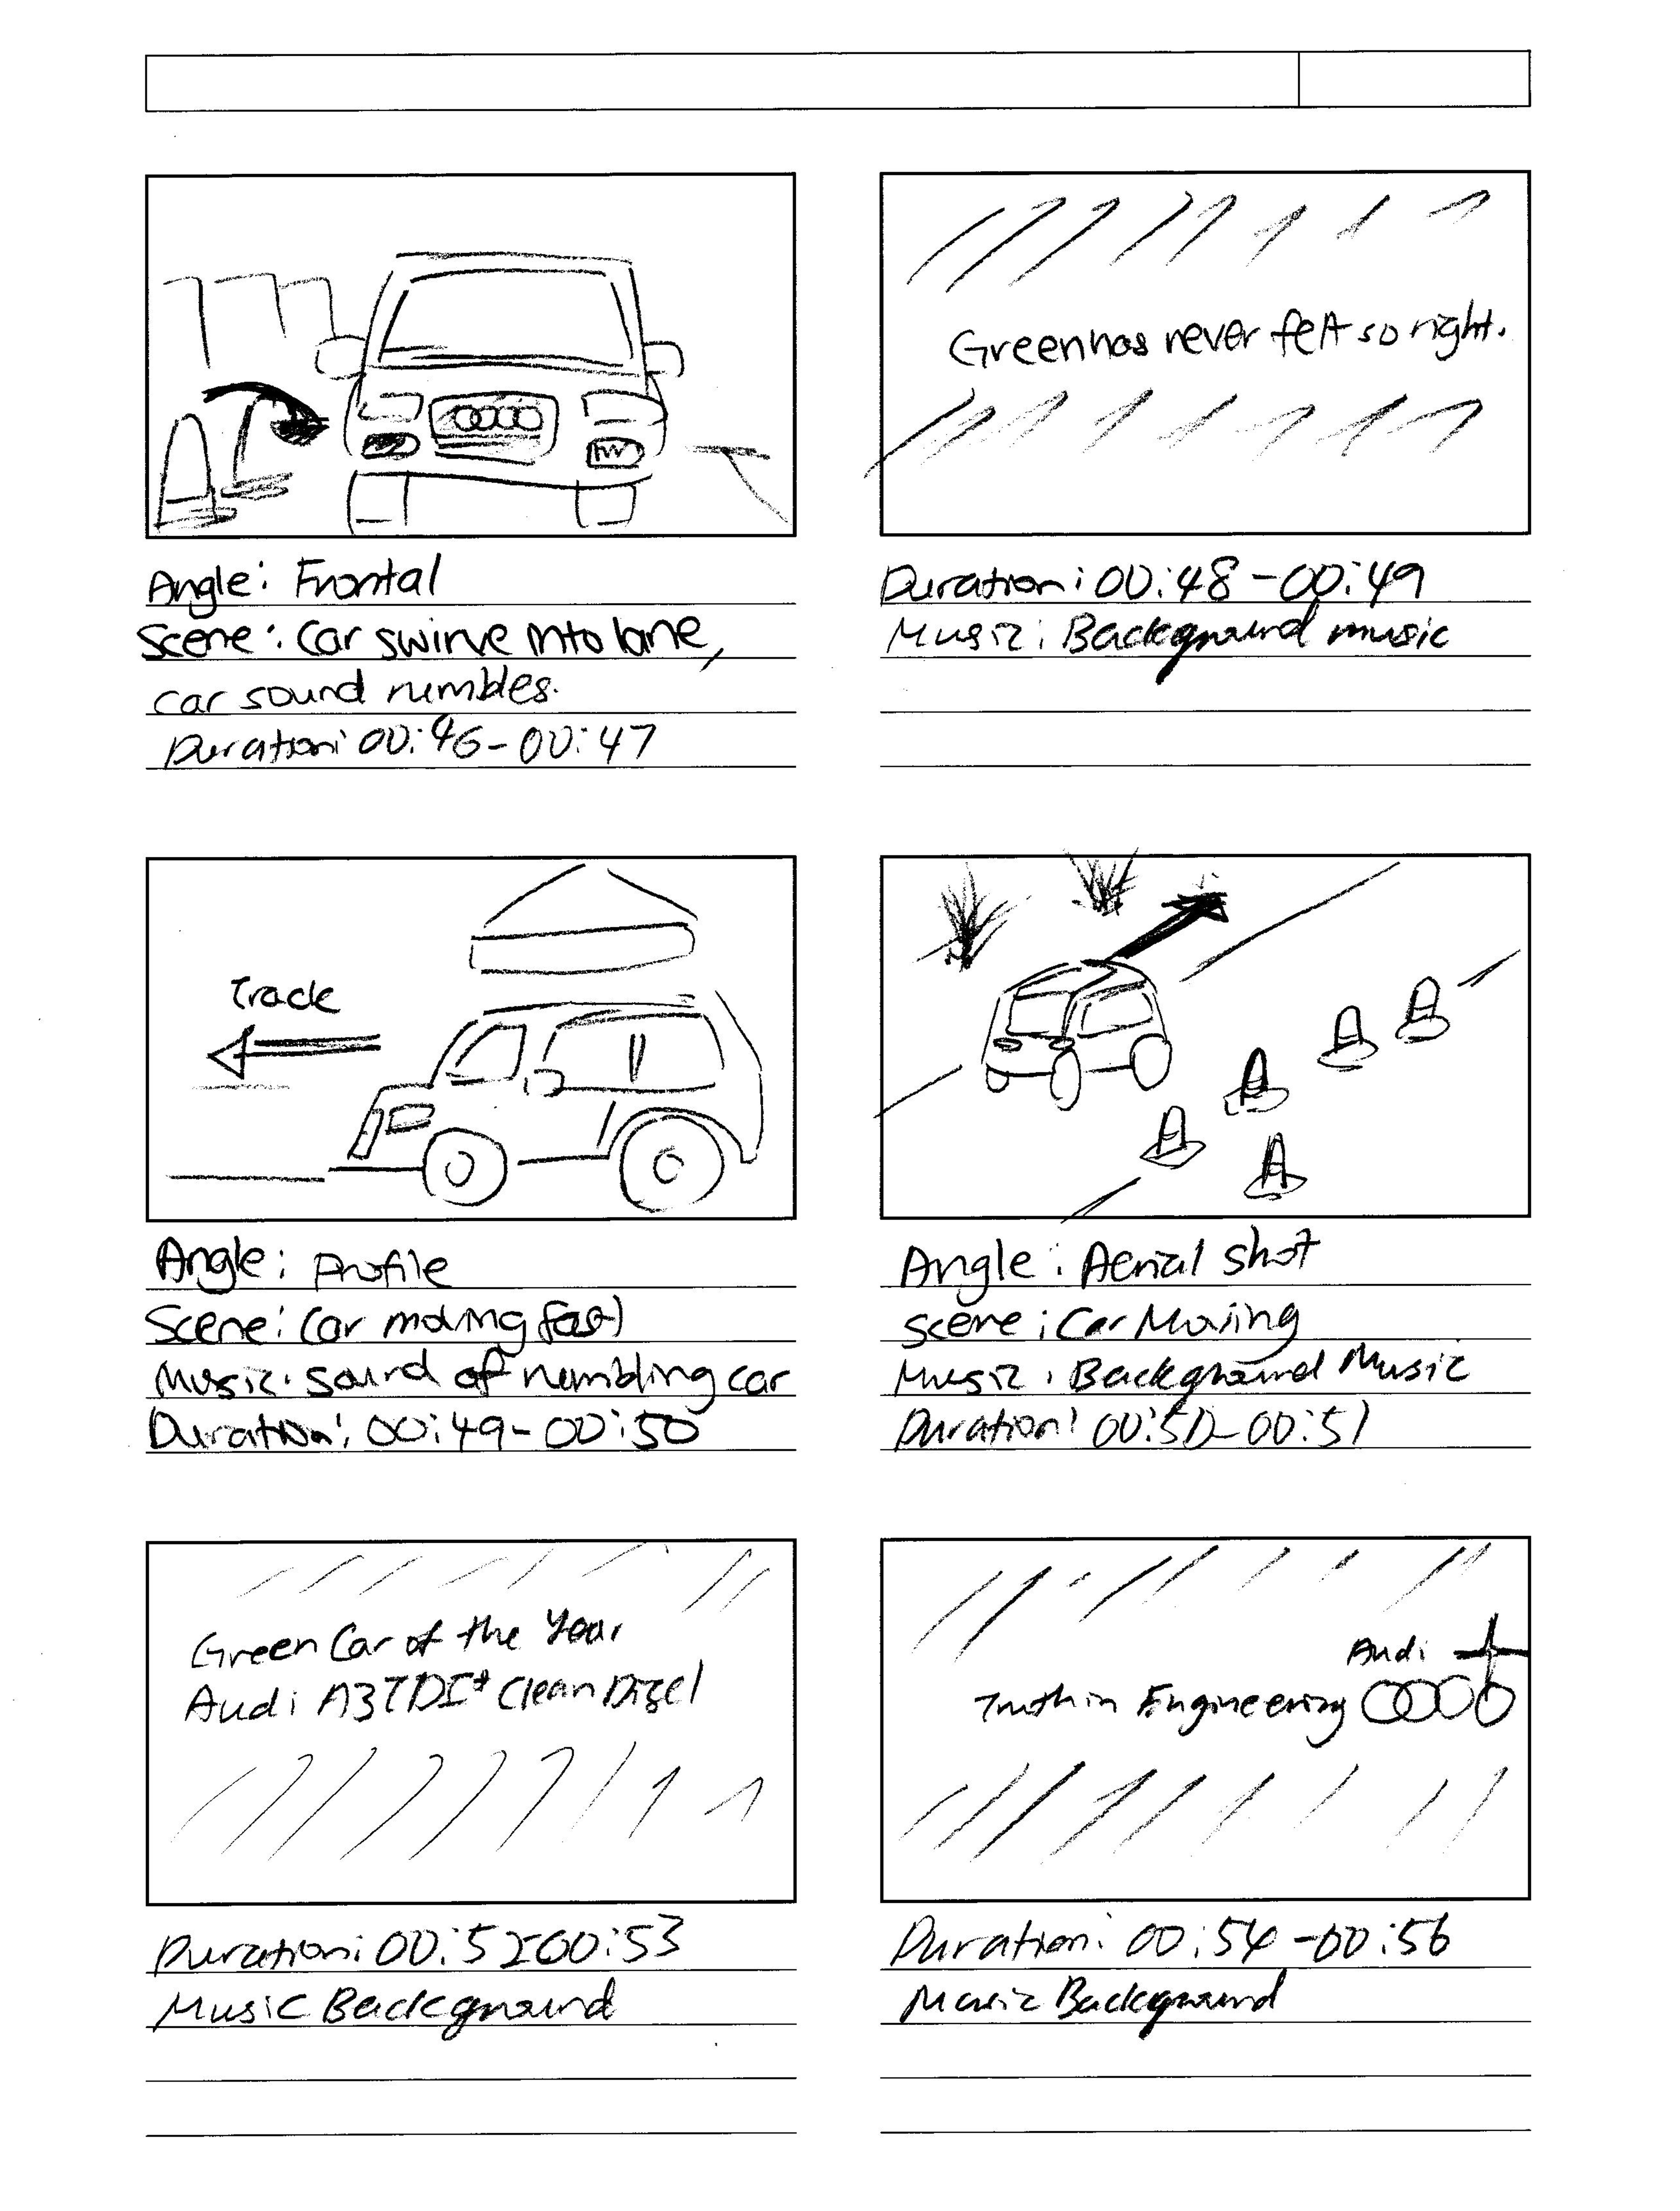 Greenhas never felt so right.
Angle: Frontal
Scene: Car swirve into lane,
car sound rumbles.
Duration: 00:46-00:47
Duration: 00:48-00:49
Music: Background music
Track
Angle: Profile
Scene: Car moving fast
Music: sound of rumbling car
Duration: 00:49-00:50
Angle: Aerial shot
scene: Car Moving
Music: Background Music
Duration: 00:50-00:51
Green Car of the Year
Audi A3TDI* Clean Disel
Duration: 00:52-00:53
Music Background
Audi
Truth in Engineering
Duration: 00:54-00:56
Music Background